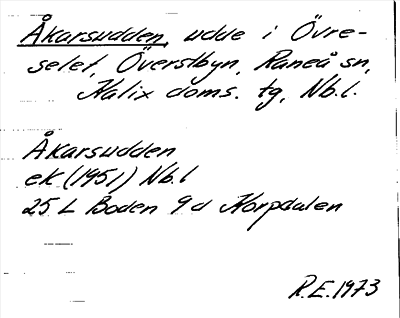 Åkarsudden, udde i Övre-
selet, Överstbyn, Råneå sn,
Kalix doms. tg, Nb.l.
Åkarsudden
ek (1951) Nb.l
25 L Boden 9d Korpdalen
R.E. 1973